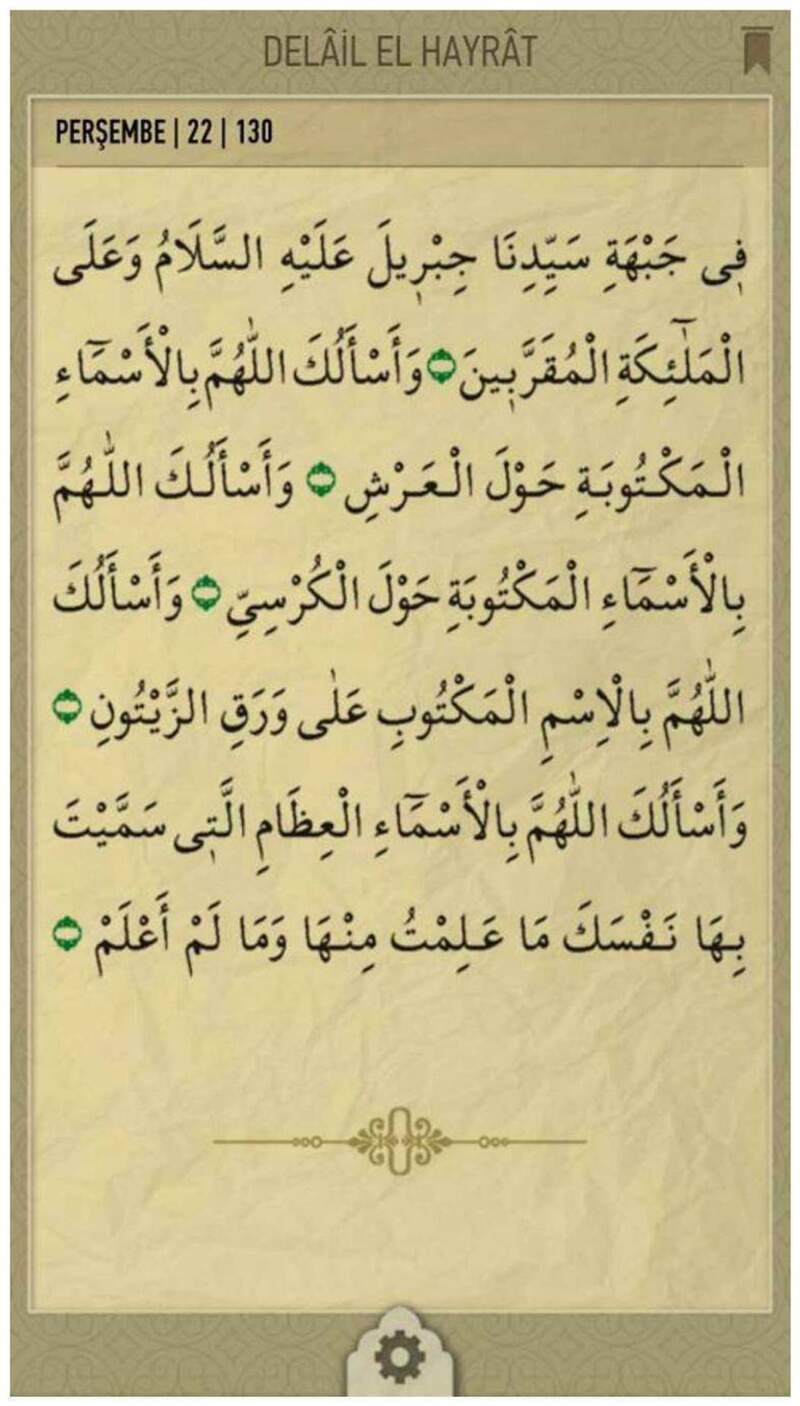 DELÂİL EL HAYRÂT
PERŞEMBE | 22 | 130
فِى جَبْهَةِ سَيِّدِنَا جِبْرِيلَ عَلَيْهِ السَّلَامُ وَعَلَى
الْمَلٰٓئِكَةِ الْمُقَرَّبِينَ وَأَسْأَلُكَ اللّٰهُمَّ بِالْأَسْمَٓاءِ
الْمَكْتُوبَةِ حَوْلَ الْعَرْشِ وَأَسْأَلُكَ اللّٰهُمَّ
بِالْأَسْمَٓاءِ الْمَكْتُوبَةِ حَوْلَ الْكُرْسِيِّ وَأَسْأَلُكَ
اللّٰهُمَّ بِالْاِسْمِ الْمَكْتُوبِ عَلٰى وَرَقِ الزَّيْتُونِ
وَأَسْأَلُكَ اللّٰهُمَّ بِالْأَسْمَٓاءِ الْعِظَامِ الَّتِى سَمَّيْتَ
بِهَا نَفْسَكَ مَا عَلِمْتُ مِنْهَا وَمَا لَمْ أَعْلَمْ